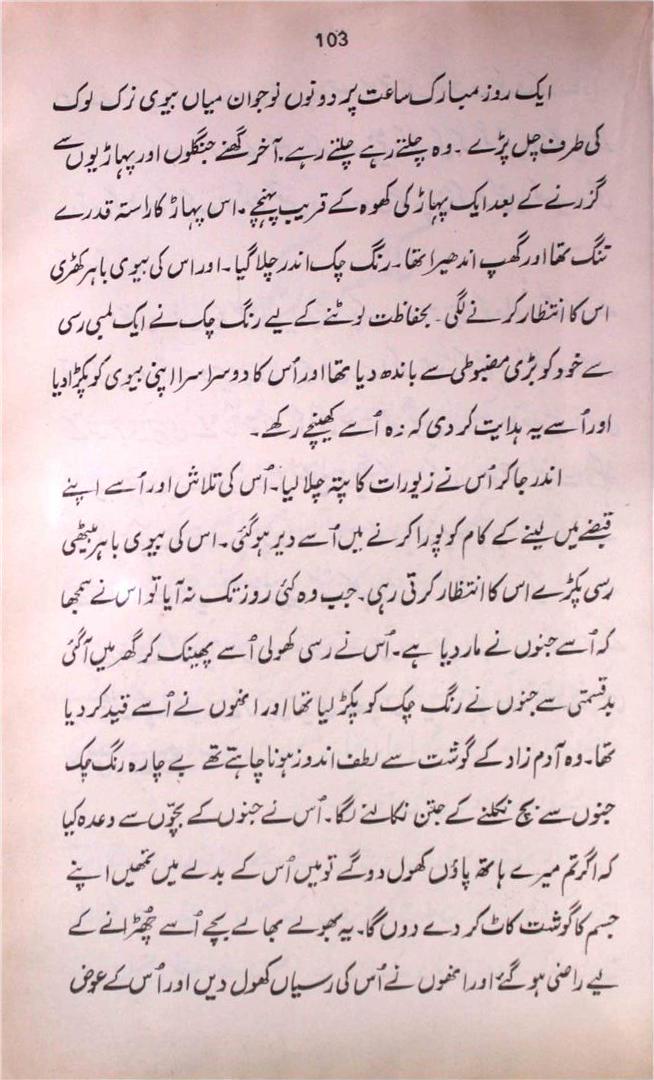 103
ایک روز مبارک ساعت پر دونوں نوجوان میاں بیوی نزک لوک
کی طرف چل پڑے ۔ وہ چلتے رہے چلتے رہے۔ آخر گھنے جنگلوں اور پہاڑیوں سے
گزرنے کے بعد ایک پہاڑ کی کھوہ کے قریب پہنچے ۔ اس پہاڑ کا راستہ قدرے
تنگ تھا اور گھپ اندھیرا تھا۔ رنگ چک اندر چلا گیا ۔ اور اس کی بیوی باہر کھڑی
اس کا انتظار کرنے لگی ۔ بحفاظت لوٹنے کے لیے رنگ چک نے ایک لمبی رسی
سے خود کو بڑی مضبوطی سے باندھ دیا تھا اور اُس کا دوسرا سرا اپنی بیوی کو پکڑا دیا
اور اُسے یہ ہدایت کر دی کہ وہ اُسے کھینچے رکھے ۔
اندر جا کر اُس نے زیورات کا پتہ چلا لیا۔ اُس کی تلاش اور اُسے اپنے
قبضے میں لینے کے کام کو پورا کرنے میں اُسے دیر ہو گئی ۔ اس کی بیوی باہر بیٹھی
رسی پکڑے اس کا انتظار کرتی رہی۔ جب وہ کئی روز تک نہ آیا تو اس نے سمجھا
کہ اُسے جنوں نے مار دیا ہے۔ اُس نے رسی کھولی اُسے پھینک کر گھر میں آ گئی
بدقسمتی سے جنوں نے رنگ چک کو پکڑ لیا تھا اور انھوں نے اُسے قید کر دیا
تھا۔ وہ آدم زاد کے گوشت سے لطف اندوز ہونا چاہتے تھے بے چارہ رنگ چک
جنوں سے بچ نکلنے کے جتن نکالنے لگا۔ اُس نے جنوں کے بچّوں سے وعدہ کیا
کہ اگر تم میرے ہاتھ پاؤں کھول دو گے تو میں اُس کے بدلے میں تمھیں اپنے
جسم کا گوشت کاٹ کر دے دوں گا۔ یہ بھولے بھالے بچے اُسے چُھڑانے کے
لیے راضی ہو گئے اور انھوں نے اُس کی رسیاں کھول دیں اور اُس کے عوض